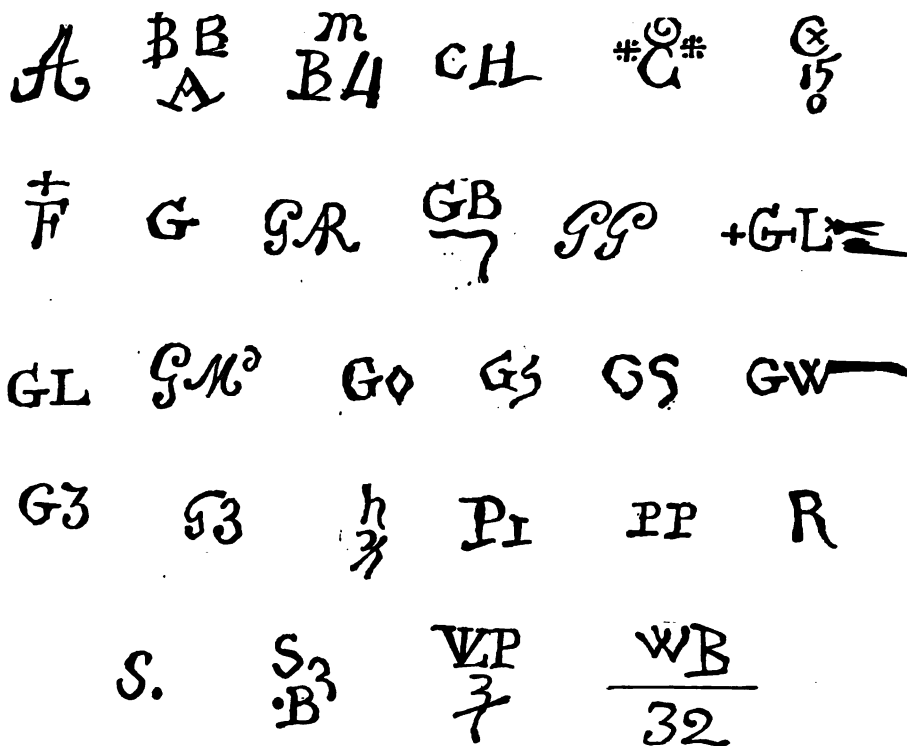 A BB A m B4 CH *C* C× 15 0
+ F G GR GB 7 GG +GL
GL GMo Go GS GS GW
G3 G3 h PI PP R
S. S3 .B VLP 3/1 WB 32